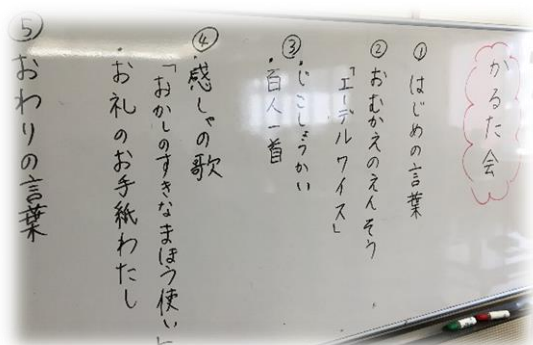 かるた会
① はじめの言葉
② おむかえのえんそう
「エーデルワイス」
③・じこしょうかい
・百人一首
④・感しゃの歌
「おかしのすきなまほう使い」
・お礼のお手紙わたし
⑤ おわりの言葉